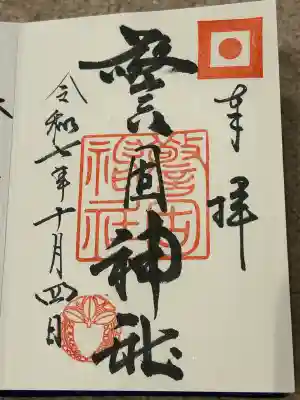 奉拝
警固神社
警固神社
令和七年十月四日